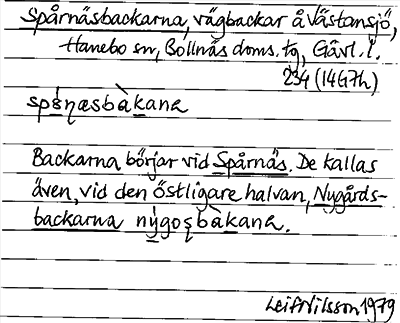 Spårnäsbackarna, vägbackar å Västansjö,
Hanebo sn, Bollnäs doms. tg, Gävl. l.
234 (14G7h)
spå̀ɳæsbàkana
Backarna börjar vid Spårnäs. De kallas
även, vid den östligare halvan, Nygårds-
backarna nỳgoʂbàkana.
Leif Nilsson 1979